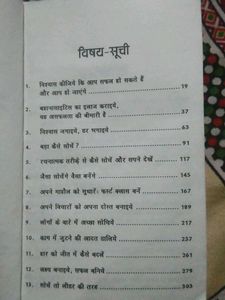 विषय-सूची
1. विश्वास कीजिये कि आप सफल हो सकते हैं
और आप हो जाएंगे 19
2. बहानासाइटिस का इलाज कराइये,
यह असफलता की बीमारी है 37
3. विश्वास जगाइये, डर भगाइये 63
4. बड़ा कैसे सोचें ? 91
5. रचनात्मक तरीक़े से कैसे सोचें और सपने देखें 117
6. जैसा सोचेंगे वैसा बनेंगे 145
7. अपने माहौल को सुधारें: फ़र्स्ट क्लास बनें 167
8. अपने विचारों को अपना दोस्त बनाइये 189
9. लोगों के बारे में अच्छा सोचिये 217
10. काम में जुटने की आदत डालिये 237
11. हार को जीत में कैसे बदलें 261
12. लक्ष्य बनाइये, सफल बनिये 279
13. सोचें तो लीडर की तरह 303